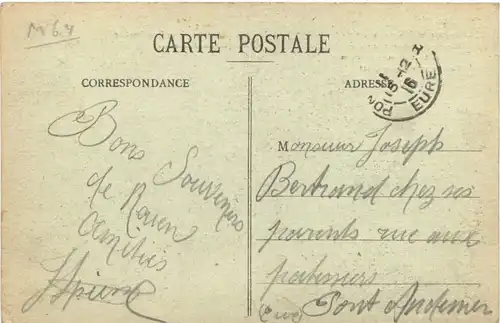 M64
CARTE POSTALE
CORRESPONDANCE
ADRESSE
PON
EURE
Bons
Souvenirs
de Rouen
amitiés
Monsieur Joseph
Bertrand chez ses
parents rue aux
(Eure) Pont Audemer